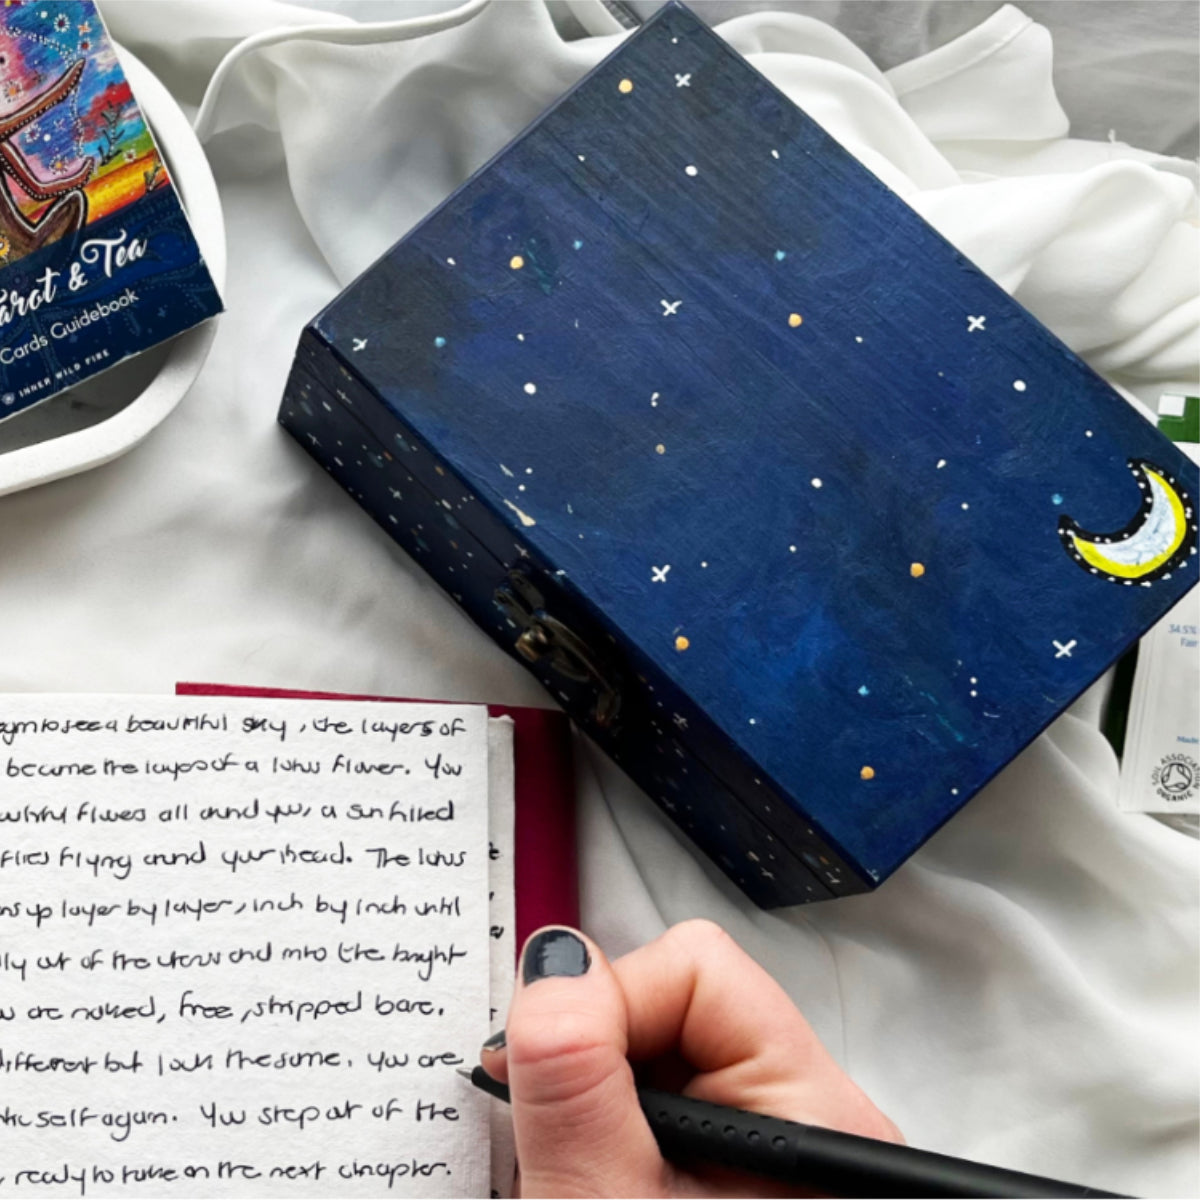 arot & Tea
Cards Guidebook
INNER WILD FIRE
34.5%
Fair
Made
SOIL ASSOCIATION
ORGANIC
to see a beautiful sky, the layers of
become the layers of a lotus flower. You
flowers all around you, a sun filled
flies flying around your head. The lotus
ns up layer by layer, inch by inch until
lly out of the and into the bright
w are naked, free, stripped bare.
different but look the same. You are
tic self again. You step out of the
ready to take on the next chapter.